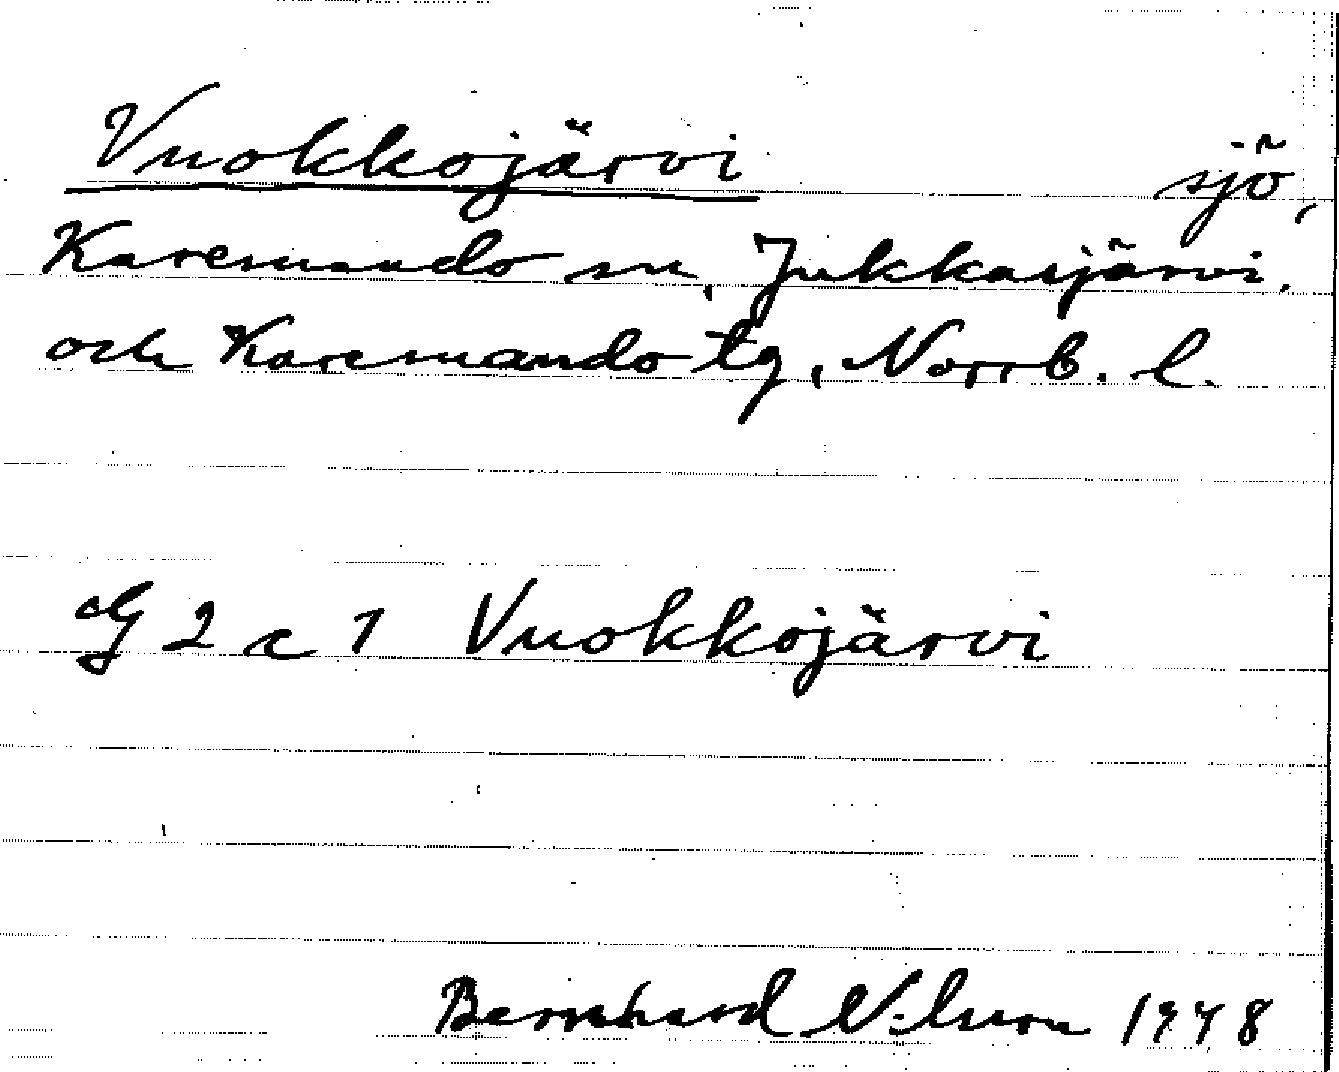 Vuokkojärvi sjö,
Karesuando sn, Jukkasjärvi
och Karesuando tg, Norrb. l.
G 2 c 1 Vuokkojärvi
Bernhard Nilsson 1948